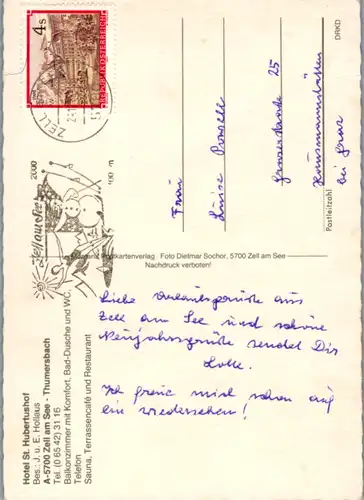 4s
REPUBLIK ÖSTERREICH
ZELL
2000
Zell am See
DRKD
Frau
Luise
25
Hausmannstätten
bei Graz
Postleitzahl
Postkartenverlag Foto Dietmar Sochor, 5700 Zell am See
Nachdruck verboten!
Liebe Urlaubsgrüße aus
Zell am See und schöne
Neujahrsgrüße sendet Dir
Lotte.
Ich freue mich schon auf
ein wiedersehen!
Hotel St. Hubertushof
Bes.: J. u. E. Hollaus
A-5700 Zell am See - Thumersbach
Tel. (0 65 42) 31 16
Balkonzimmer mit Komfort, Bad-Dusche und WC,
Telefon
Sauna, Terrassencafé und Restaurant